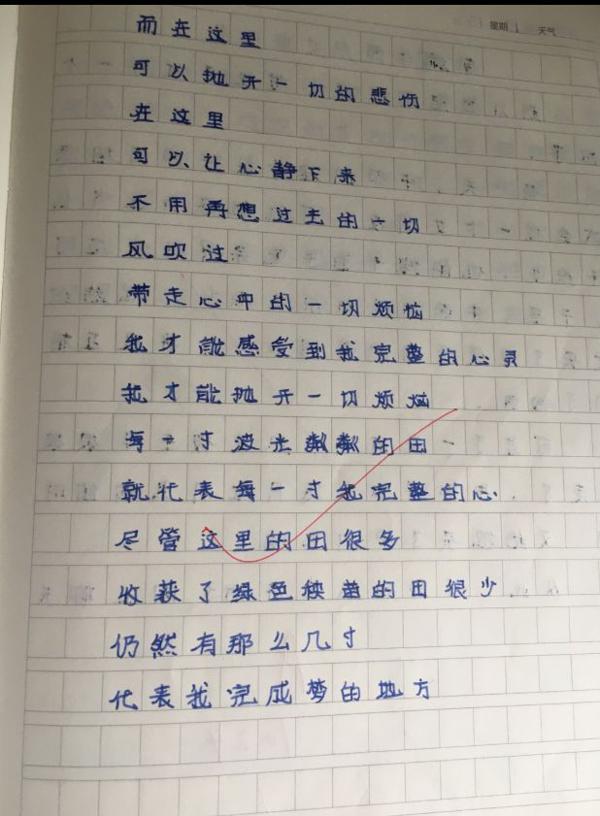 星期 天气
而在这里
可以抛开一切的悲伤
在这里
可以让心静下来
不用再想过去的一切
风吹过
带走心中的一切烦恼
我才能感受到我完整的心灵
我才能抛开一切烦恼
每一寸波光粼粼的田
就代表每一寸我完整的心.
尽管这里的田很多
收获了绿色秧苗的田很少
仍然有那么几寸
代表我完成梦的地方